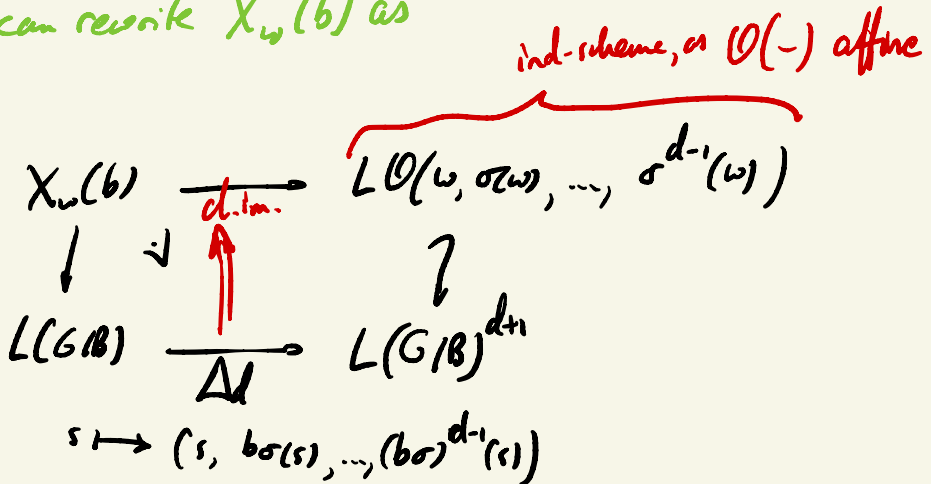 can rewrite X_w(b) as
ind-scheme, as O(-) affine
X_w(b) ⟶ L O(w, σ(w), ..., σ^{d-1}(w))
cl.im.
L(G/B) ⟶ L(G/B)^{d+1}
Δd
s ↦ (s, bσ(s), ..., (bσ)^{d-1}(s))